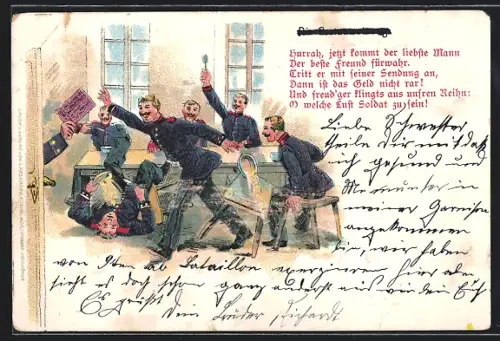 Hurrah, jetzt kommt der liebste Mann
Der beste Freund fürwahr.
Tritt er mit seiner Sendung an,
Dann ist das Geld nicht rar!
Und freud'ger klingts aus unsren Reihn:
O welche Lust Soldat zu sein!
Liebe Schwester
theile Dir mit daß
ich gesund und
munter in
meiner Garnison
angekommen
bin, wir haben
von 9ten ab Bataillon exerzieren hier aber
sieht es doch schon ganz anderst aus wie bei Euch
Es grüßt Dein Bruder Richardt